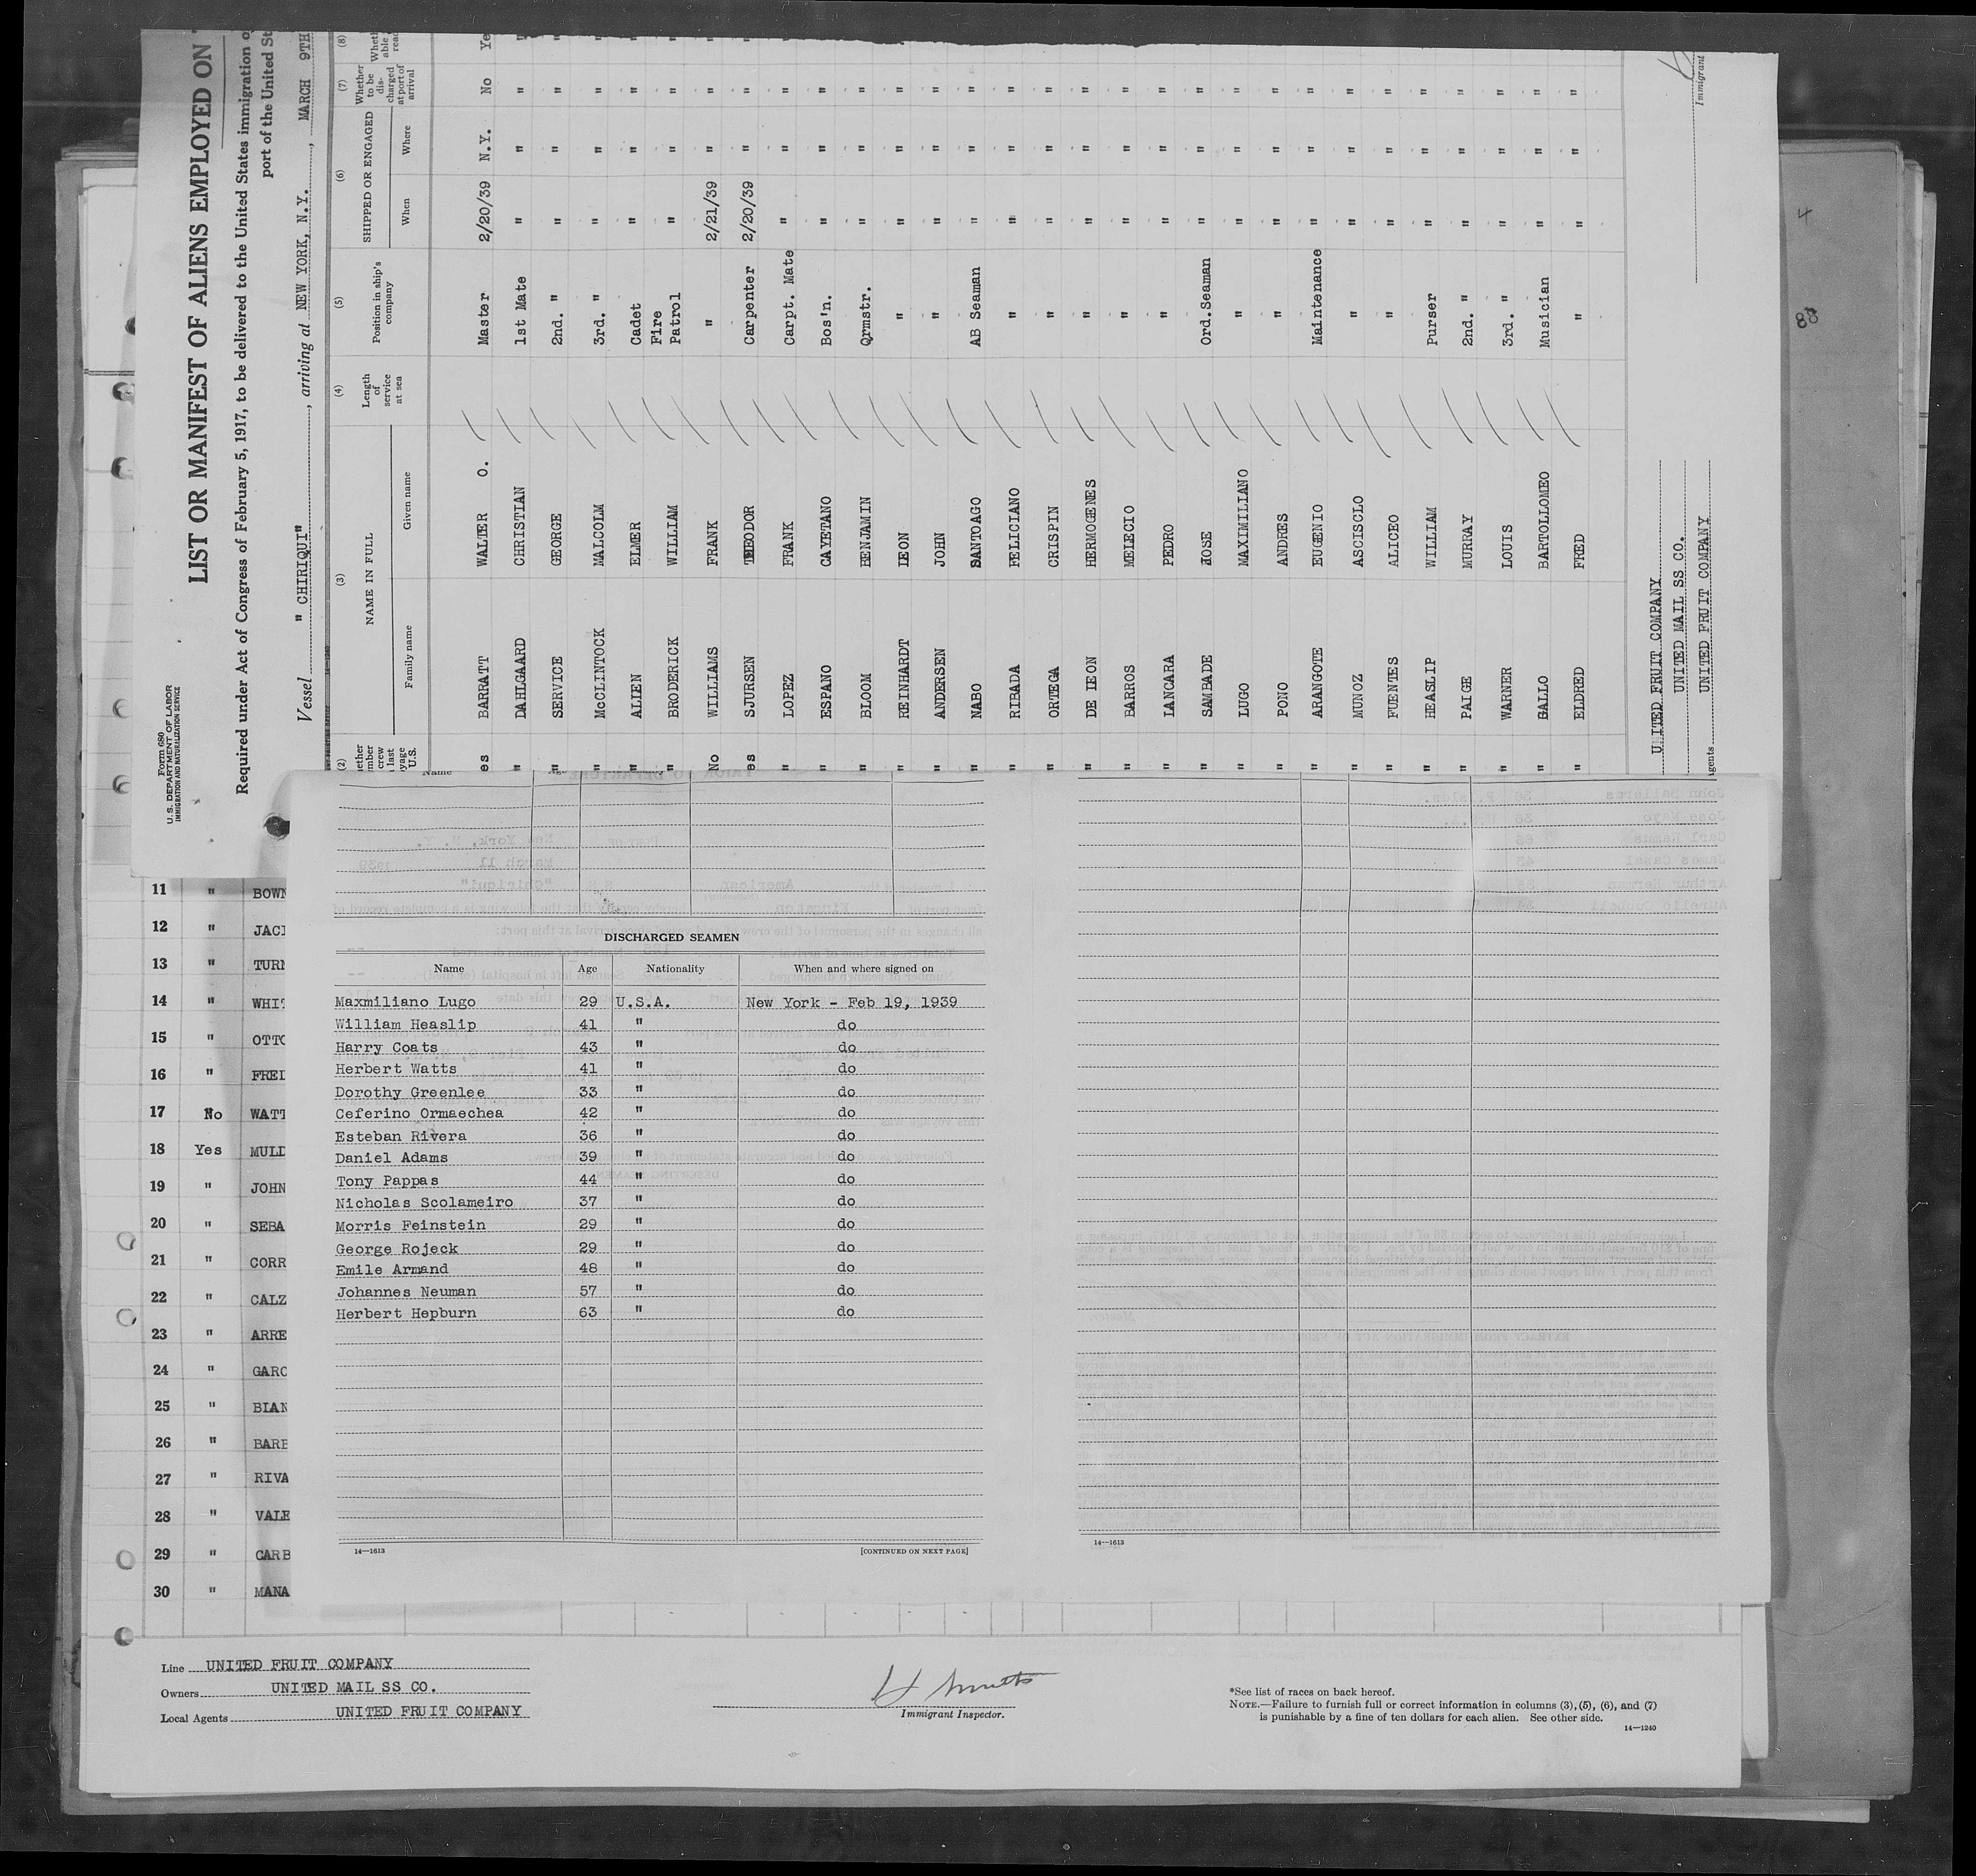 Form 680
U. S. DEPARTMENT OF LABOR
IMMIGRATION AND NATURALIZATION SERVICE
LIST OR MANIFEST OF ALIENS EMPLOYED ON
Required under Act of Congress of February 5, 1917, to be delivered to the United States immigration
port of the United
Vessel "CHIRIQUI", arriving at NEW YORK, N.Y., MARCH 9TH
(2) (3) (4) (5) (6) (7) (8)
NAME IN FULL
Family name Given name
Length of service at sea
Position in ship's company
SHIPPED OR ENGAGED
When Where
Whether to be discharged at port of arrival
es BARRATT WALTER O. Master 2/20/39 N.Y. No Ye
" DAHLGAARD CHRISTIAN 1st Mate " " " "
" SERVICE GEORGE 2nd. " " " " "
" McCLINTOCK MALCOLM 3rd. " " " " "
" ALIEN ELMER Cadet " " " "
" BRODERICK WILLIAM Fire Patrol " " " "
No WILLIAMS FRANK " 2/21/39 " " "
es SJURSEN THEODOR Carpenter 2/20/39 " " "
" LOPEZ FRANK Carpt. Mate " " " "
" ESPANO CAYETANO Bos'n. " " " "
" BLOOM BENJAMIN Qrmstr. " " " "
" REINHARDT LEON " " " " "
" ANDERSEN JOHN " " " " "
" NABO SANTOAGO AB Seaman " " " "
" RIBADA FELICIANO " " " " "
" ORTEGA CRISPIN " " " " "
" DE LEON HERMOGENES " " " " "
" BARROS MELECIO " " " " "
" LANCARA PEDRO " " " " "
" SAMBADE JOSE Ord.Seaman " " " "
" LUGO MAXIMILIANO " " " " "
" PONO ANDRES " " " " "
" ARANGOTE EUGENIO Maintenance " " " "
" MUNOZ ASCISCLO " " " " "
" FUENTES ALICEO " " " " "
" HEASLIP WILLIAM Purser " " " "
" PAIGE MURRAY 2nd. " " " " "
" WARNER LOUIS 3rd. " " " " "
" GALLO BARTOLLOMEO Musician " " " "
" ELDRED FRED " " " " "
UNITED FRUIT COMPANY
UNITED MAIL SS CO.
gents UNITED FRUIT COMPANY
Immigrant
4
88
11 " BOWN
12 " JAC
13 " TUR
14 " WHI
15 " OTTO
16 " FRE
17 No WATT
18 Yes MULD
19 " JOHN
20 " SEBA
21 " CORR
22 " CALZ
23 " ARRE
24 " GARC
25 " BIAN
26 " BARB
27 " RIVA
28 " VALE
29 " CARB
30 " MANA
DISCHARGED SEAMEN
Name Age Nationality When and where signed on
Maxmiliano Lugo 29 U.S.A. New York - Feb 19, 1939
William Heaslip 41 " do
Harry Coats 43 " do
Herbert Watts 41 " do
Dorothy Greenlee 33 " do
Ceferino Ormaechea 42 " do
Esteban Rivera 36 " do
Daniel Adams 39 " do
Tony Pappas 44 " do
Nicholas Scolameiro 37 " do
Morris Feinstein 29 " do
George Rojeck 29 " do
Emile Armand 48 " do
Johannes Neuman 57 " do
Herbert Hepburn 63 " do
14—1613 [CONTINUED ON NEXT PAGE]
14—1613
Line UNITED FRUIT COMPANY
Owners UNITED MAIL SS CO.
Local Agents UNITED FRUIT COMPANY
Immigrant Inspector.
*See list of races on back hereof.
NOTE.—Failure to furnish full or correct information in columns (3), (5), (6), and (7)
is punishable by a fine of ten dollars for each alien. See other side.
14—1240